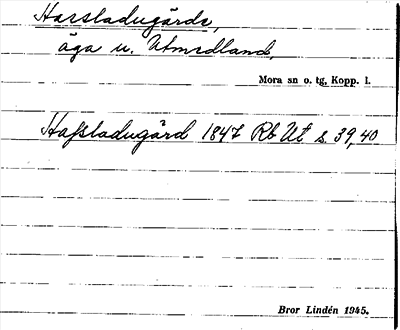 Harsladugårde,
äga u. Utmedland,
Mora sn o. tg, Kopp. l.
Hafsladugård 1847 Rb Ut s. 39, 40
Bror Lindén 1945.